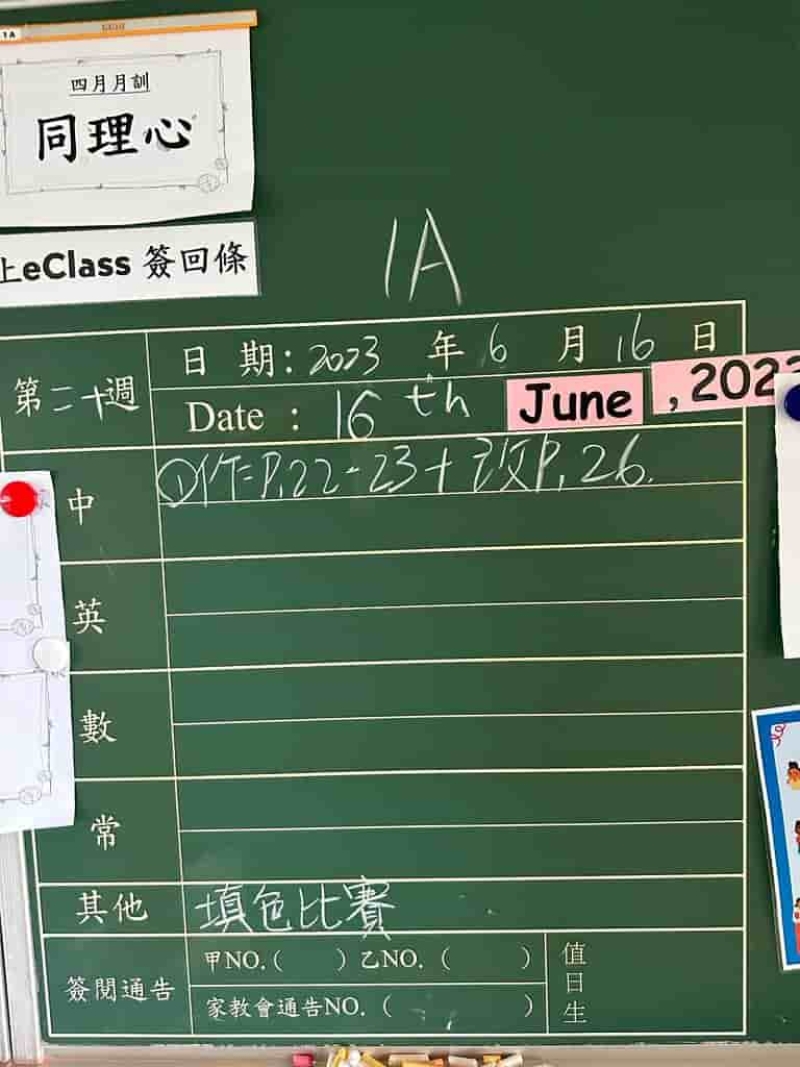 1A
四月月訓
同理心
上eClass 簽回條
1A
第二十週
日 期: 2023 年 6 月 16 日
Date : 16 th June , 202
中
①作=P.22-23+改P.26.
英
數
常
其他 填色比賽
簽閱通告
甲NO.( ) 乙NO. ( )
家教會通告NO. ( )
值日生